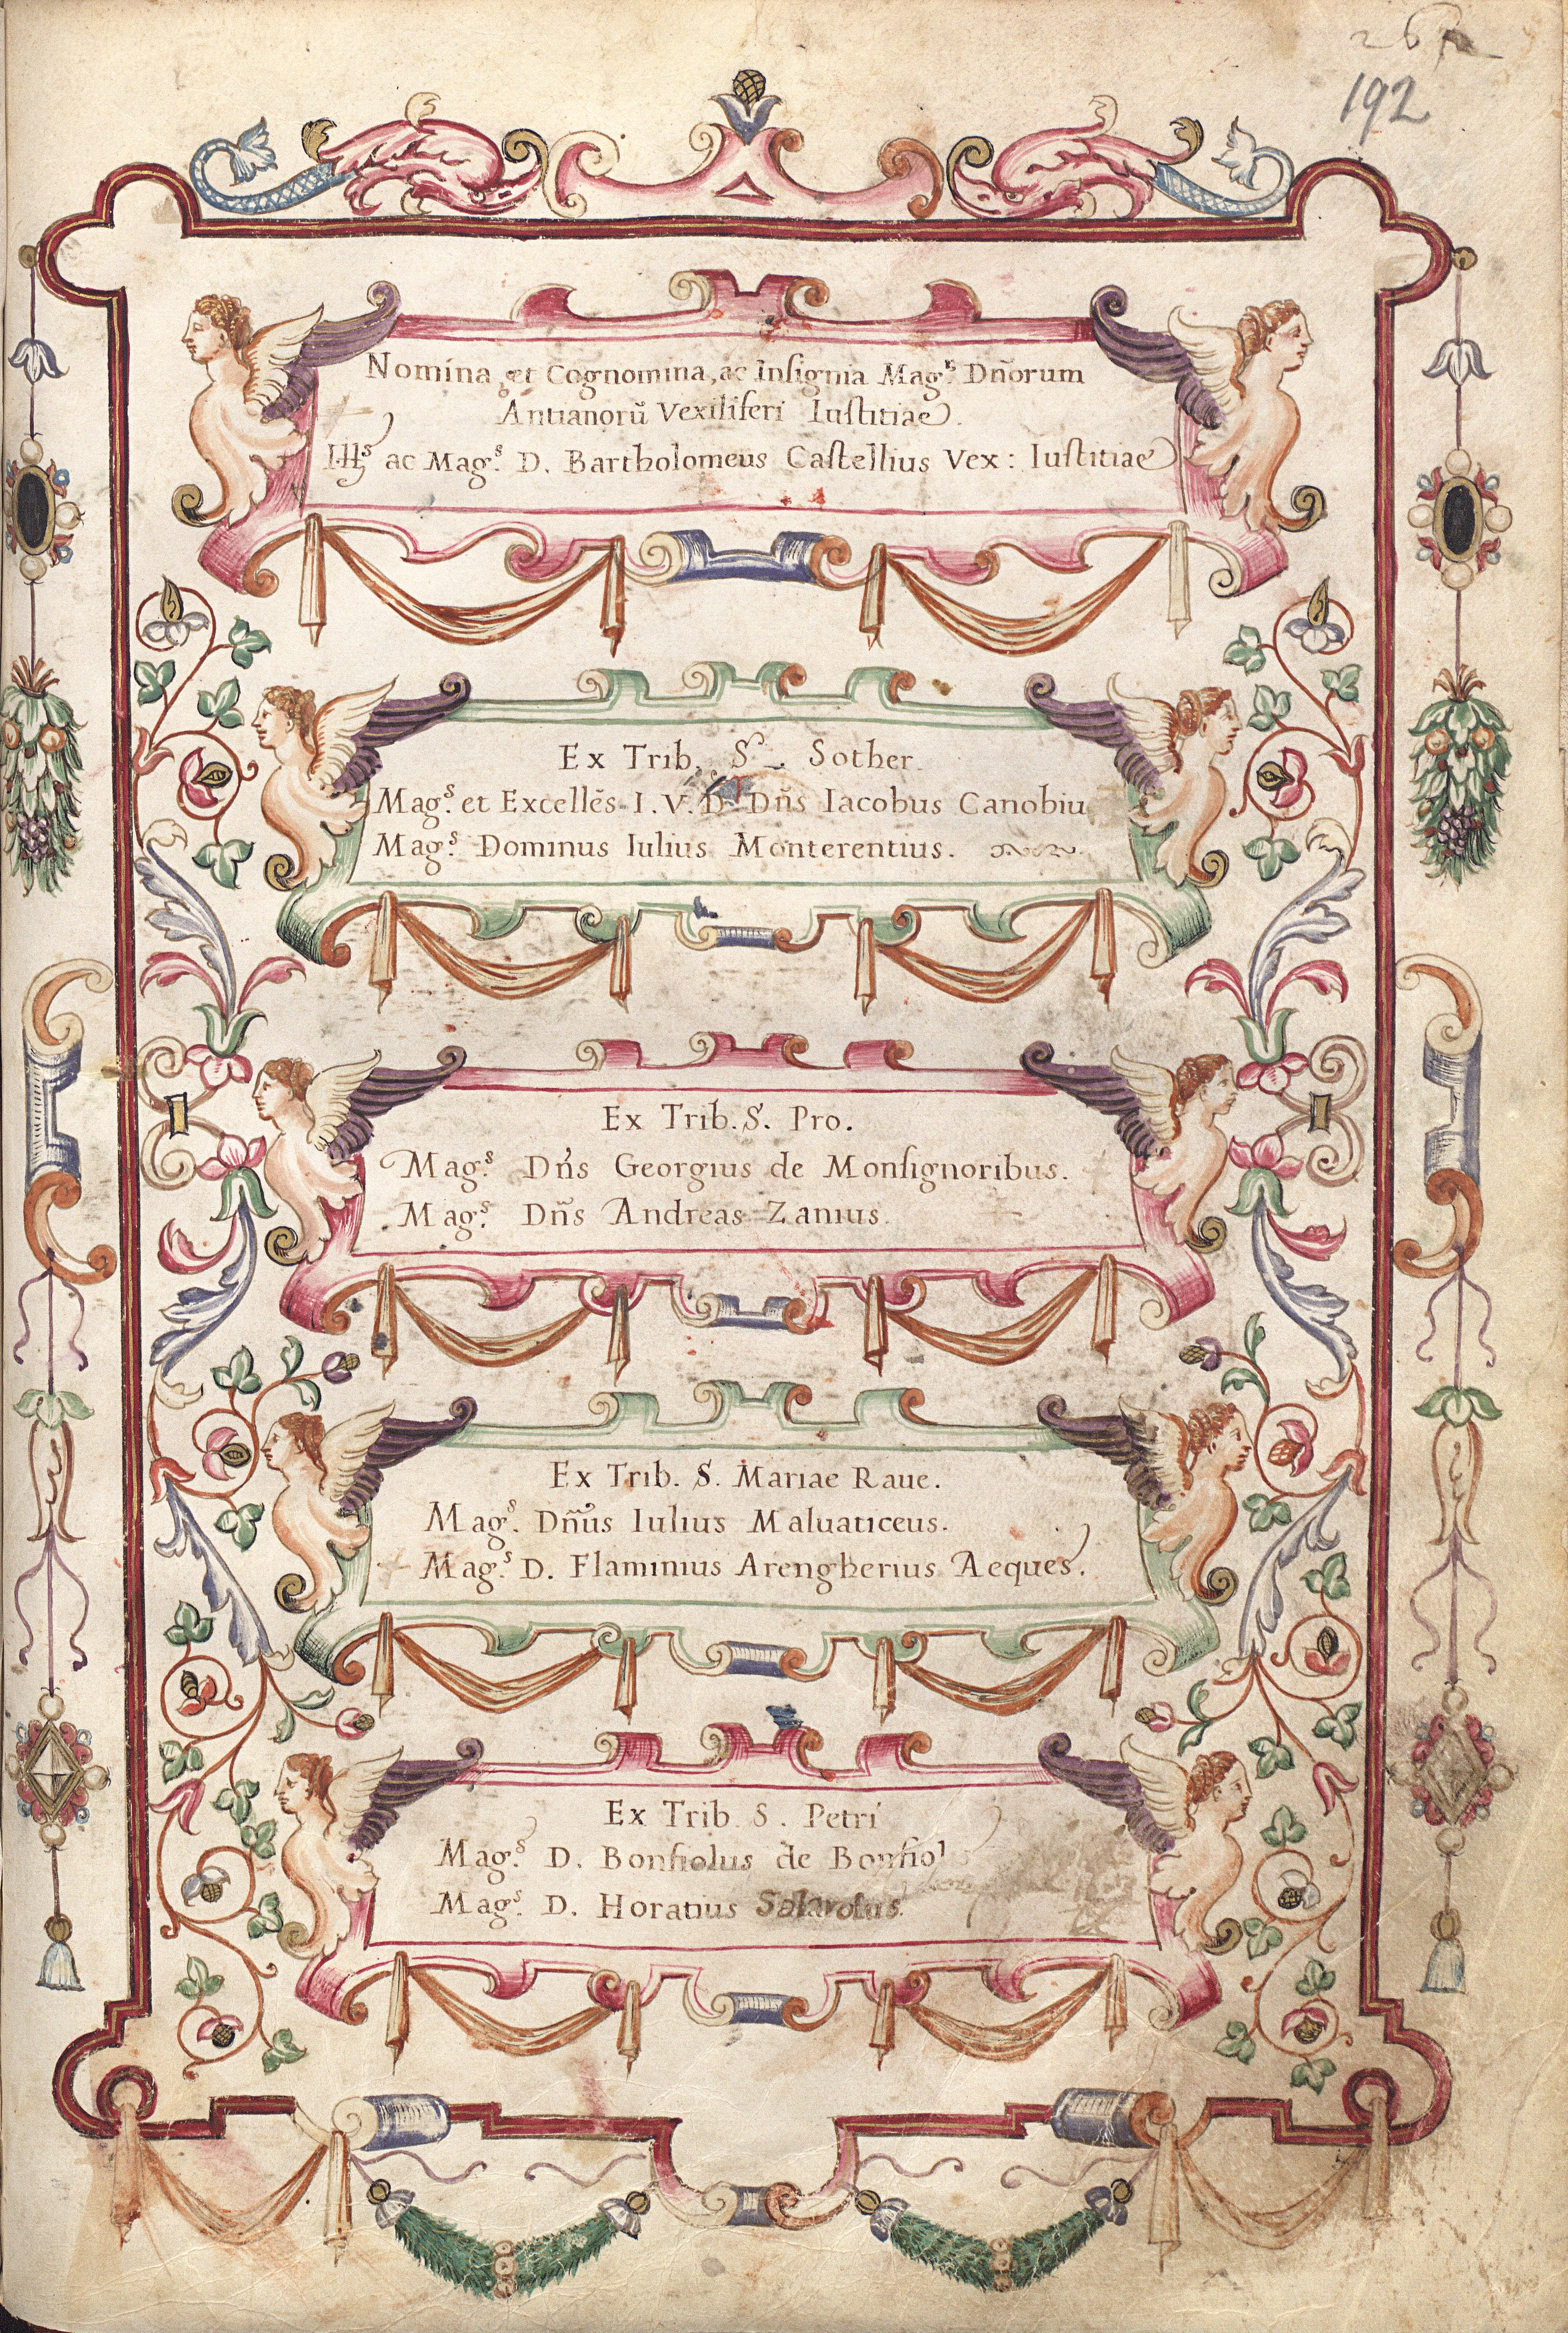 192
Nomina, et Cognomina, ac Inſignia Mag.ᶜᵒʳ Dñorum
Antianorũ Vexiliferi Iuſtitiae.
Ill.ˢ ac Mag.ˢ D. Bartholomeus Caſtellius Vex: Iuſtitiae
Ex Trib. S. Sother.
Mag.ˢ et Excellẽs I. V. D. Dñs Iacobus Canobiu
Mag.ˢ Dominus Iulius Monterentius.
Ex Trib. S. Pro.
Mag.ˢ Dñs Georgius de Monſignoribus.
Mag.ˢ Dñs Andreas Zanius.
Ex Trib. S. Mariae Raue.
Mag.ˢ Dñus Iulius Maluaticeus.
Mag.ˢ D. Flaminius Arengherius Aeques.
Ex Trib. S. Petri
Mag.ˢ D. Bonfiolus de Bonfiol
Mag.ˢ D. Horatius Salarolus.